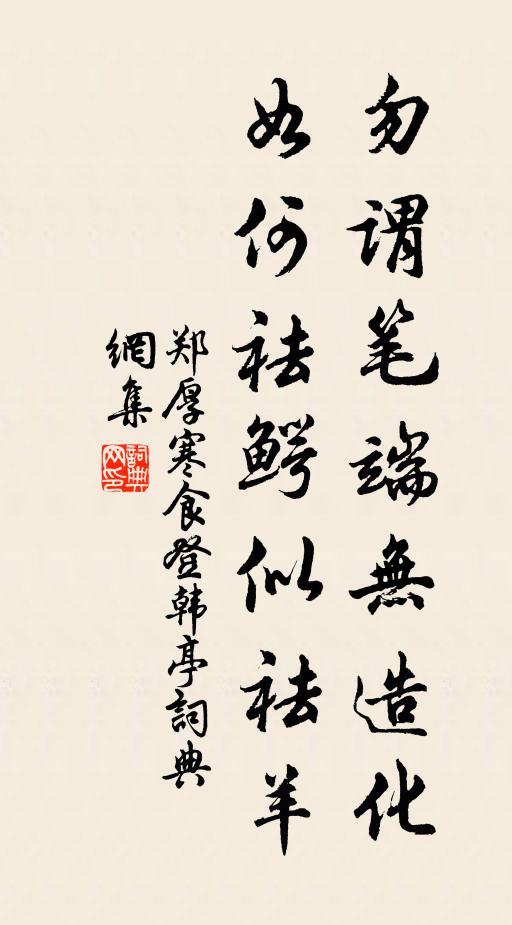 勿謂笔端無造化
如何祛鳄似祛羊
郑厚寒食登韩亭詞典
網集
詞典
网印